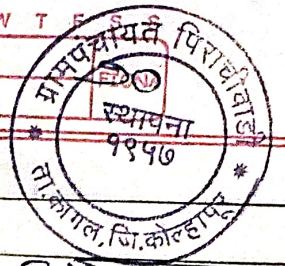 W T E S S
ग्रामपंचायत पिराचीवाडी
स्थापना
१९५७
ता.कागल, जि.कोल्हापूर